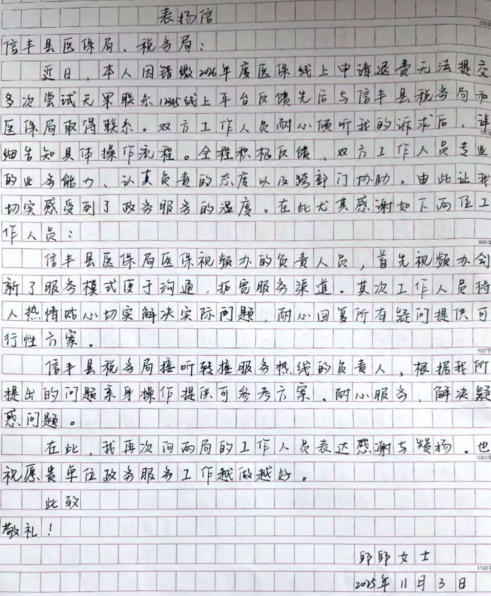 表扬信
信丰县医保局、税务局:
近日,本人因错缴2026年度医保线上申请退费无法提交
多次尝试无果联系12345线上平台反馈先后与信丰县税务局和
医保局取得联系。双方工作人员耐心倾听我的诉求后,详
细告知具体操作流程。全程积极反馈,双方工作人员专业
的业务能力、认真负责的态度以及跨部门协助。由此让我
切实感受到了政务服务的温度。在此尤其感谢如下两位工
作人员:
信丰县医保局医保视频办的负责人员,首先视频办创
新了服务模式便于沟通,拓宽服务渠道。其次工作人员待
人热情贴心切实解决实际问题,耐心回复所有疑问提供可
行性方案。
信丰县税务局接听转接服务热线的负责人,根据我所
提出的问题亲身操作提供可参考方案。耐心服务,解决疑
惑问题。
在此,我再次向两局的工作人员表达感谢与赞扬。也
祝愿贵单位政务服务工作越做越好。
此致
敬礼!
女士
2025年11月3日